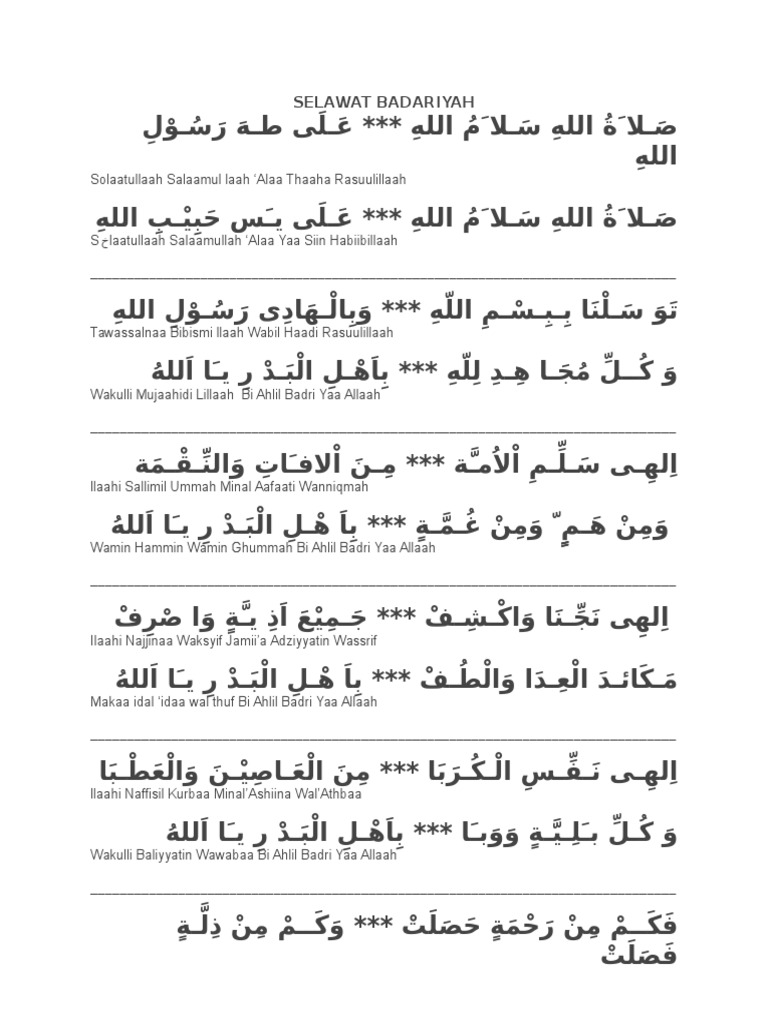 SELAWAT BADARIYAH
صَـلا َةُ اللهِ سَـلا َمُ اللهِ *** عَـلَى طـهَ رَسُـوْلِ
اللهِ
Solaatullaah Salaamul laah ‘Alaa Thaaha Rasuulillaah
صَـلا َةُ اللهِ سَـلا َمُ اللهِ *** عَـلَى يـَس حَبِيْـبِ اللهِ
Sحlaatullaah Salaamullah ‘Alaa Yaa Siin Habiibillaah
________________________________________________________________________________
تَوَ سَـلْنَا بِـبِـسْـمِ اللّهِ *** وَبِالْـهَادِى رَسُـوْلِ اللهِ
Tawassalnaa Bibismi llaah Wabil Haadi Rasuulillaah
وَ كُــلِّ مُجَـا هِـدِ لِلّهِ *** بِاَهْـلِ الْبَـدْ رِ يـَا اَللهُ
Wakulli Mujaahidi Lillaah  Bi Ahlil Badri Yaa Allaah
________________________________________________________________________________
اِلهِـى سَـلِّـمِ اْلاُمـَّة *** مِـنَ اْلافـَاتِ وَالنِّـقْـمَة
Ilaahi Sallimil Ummah Minal Aafaati Wanniqmah
وَمِنْ هَـمٍ ّ وَمِنْ غُـمَّـةٍ *** بِاَ هْـلِ الْبَـدْ رِ يـَا اَللهُ
Wamin Hammin Wamin Ghummah Bi Ahlil Badri Yaa Allaah
________________________________________________________________________________
اِلهِى نَجِّـنَا وَاكْـشِـفْ *** جَـمِيْعَ اَذِ يـَّةٍ وَا صْرِفْ
Ilaahi Najjinaa Waksyif Jamii’a Adziyyatin Wassrif
مَـكَائـدَ الْعِـدَا وَالْطُـفْ *** بِاَ هْـلِ الْبَـدْ رِ يـَا اَللهُ
Makaa idal ‘idaa wal thuf Bi Ahlil Badri Yaa Allaah
________________________________________________________________________________
اِلهِـى نَـفِّـسِ الْـكُـرَبَا *** مِنَ الْعَـاصِيْـنَ وَالْعَطْـبَا
Ilaahi Naffisil Kurbaa Minal’Ashiina Wal’Athbaa
وَ كُـلِّ بـَلِـيَّـةٍ وَوَبـَا *** بِاَهْـلِ الْبَـدْ رِ يـَا اَللهُ
Wakulli Baliyyatin Wawabaa Bi Ahlil Badri Yaa Allaah
________________________________________________________________________________
فَكَــمْ مِنْ رَحْمَةٍ حَصَلَتْ *** وَكَــمْ مِنْ ذِلَّـةٍ
فَصَلَتْ